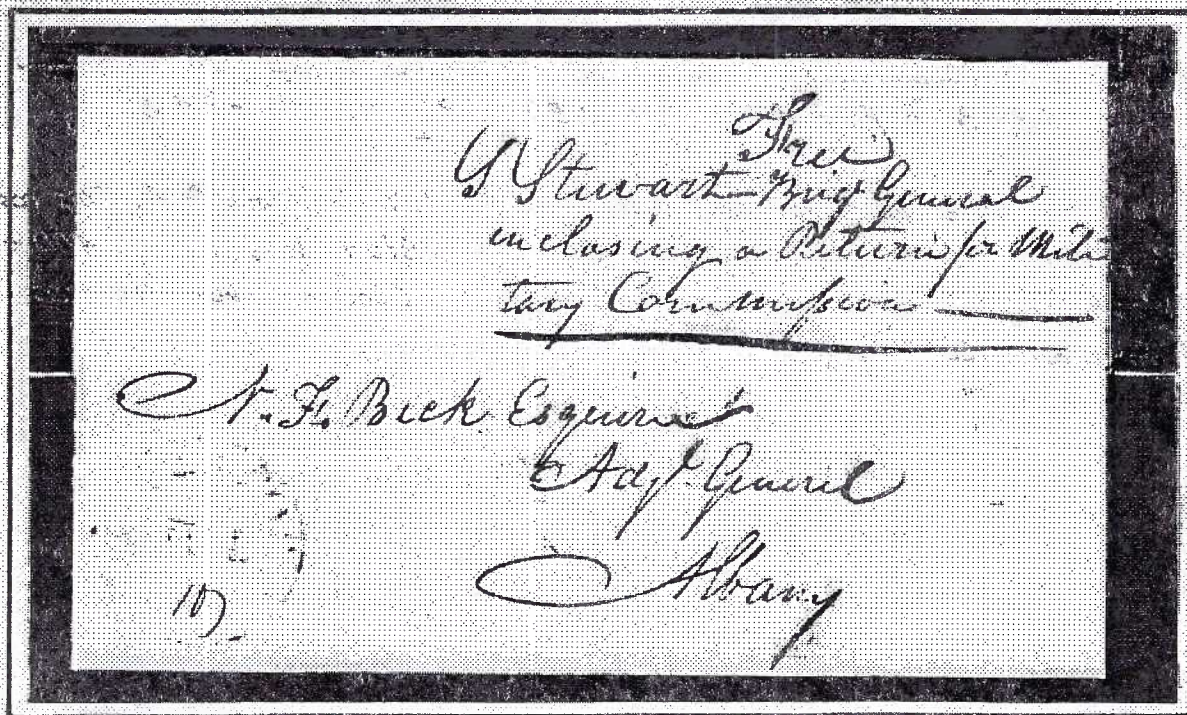 Free
G Stewart Brigr General
enclosing a Return for Mili
tary Commission
N. F. Beck Esquire
Adjt. General
Albany